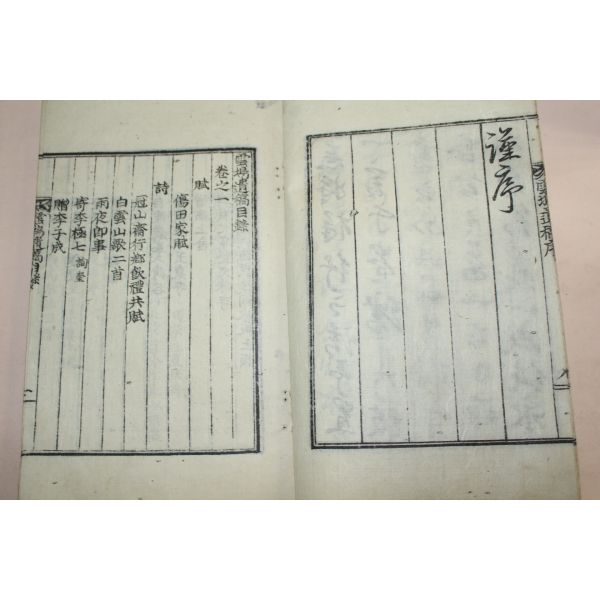 謹序
雲塢遺稿序
雲塢遺稿目錄
卷之一
賦
傷田家賦
詩
冠山齋行鄕飮禮共賦
白雲山歌二首
雨夜卽事
寄李極七
贈李子成
雲塢遺稿目錄
一